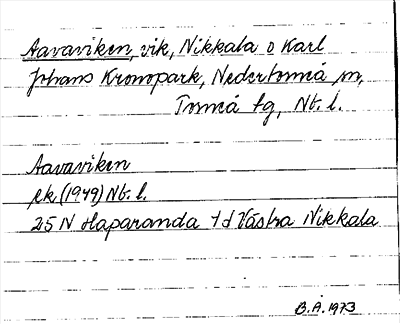 Aavaviken, vik, Nikkala o Karl
Johans Kronopark, Nedertorneå sn,
Torneå tg, Nb. l.
Aavaviken
ek (1949) Nb. l.
25 N Haparanda + d Västra Nikkala
B.A. 1973